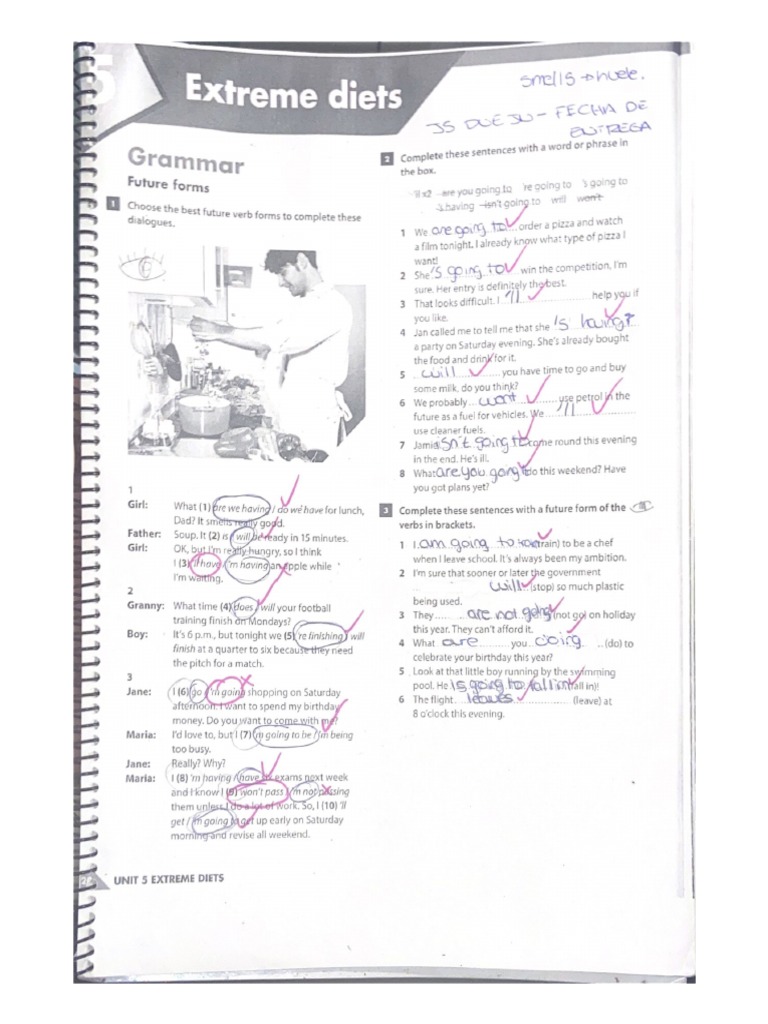 5
Extreme diets
smells → huele.
IS DUE IN - FECHA DE
ENTREGA
Grammar
Future forms
1 Choose the best future verb forms to complete these
dialogues.
1
Girl: What (1) are we having / do we have for lunch,
Dad? It smells really good.
Father: Soup. It (2) is / will be ready in 15 minutes.
Girl: OK, but I'm really hungry, so I think
I (3) 'll have / 'm having an apple while
I'm waiting.
2
Granny: What time (4) does / will your football
training finish on Mondays?
Boy: It's 6 p.m., but tonight we (5) 're finishing / will
finish at a quarter to six because they need
the pitch for a match.
3
Jane: I (6) go / 'm going shopping on Saturday
afternoon. I want to spend my birthday
money. Do you want to come with me?
Maria: I'd love to, but I (7) 'm going to be / 'm being
too busy.
Jane: Really? Why?
Maria: I (8) 'm having / have six exams next week
and I know I (9) won't pass / 'm not passing
them unless I do a lot of work. So, I (10) 'll
get / 'm going to get up early on Saturday
morning and revise all weekend.
UNIT 5 EXTREME DIETS
2 Complete these sentences with a word or phrase in
the box.
'll x2 are you going to 're going to 's going to
's having isn't going to will won't
1 We are going to order a pizza and watch
a film tonight. I already know what type of pizza I
want!
2 She 's going to win the competition, I'm
sure. Her entry is definitely the best.
3 That looks difficult. I 'll help you if
you like.
4 Jan called me to tell me that she 's having
a party on Saturday evening. She's already bought
the food and drink for it.
5 will you have time to go and buy
some milk, do you think?
6 We probably wont use petrol in the
future as a fuel for vehicles. We 'll
use cleaner fuels.
7 Jamie isn't going to come round this evening
in the end. He's ill.
8 What are you going to do this weekend? Have
you got plans yet?
3 Complete these sentences with a future form of the
verbs in brackets.
1 I am going to (train) to be a chef
when I leave school. It's always been my ambition.
2 I'm sure that sooner or later the government
will (stop) so much plastic
being used.
3 They are not going (not go) on holiday
this year. They can't afford it.
4 What are you doing (do) to
celebrate your birthday this year?
5 Look at that little boy running by the swimming
pool. He is going to fall in (fall in)!
6 The flight leaves (leave) at
8 o'clock this evening.